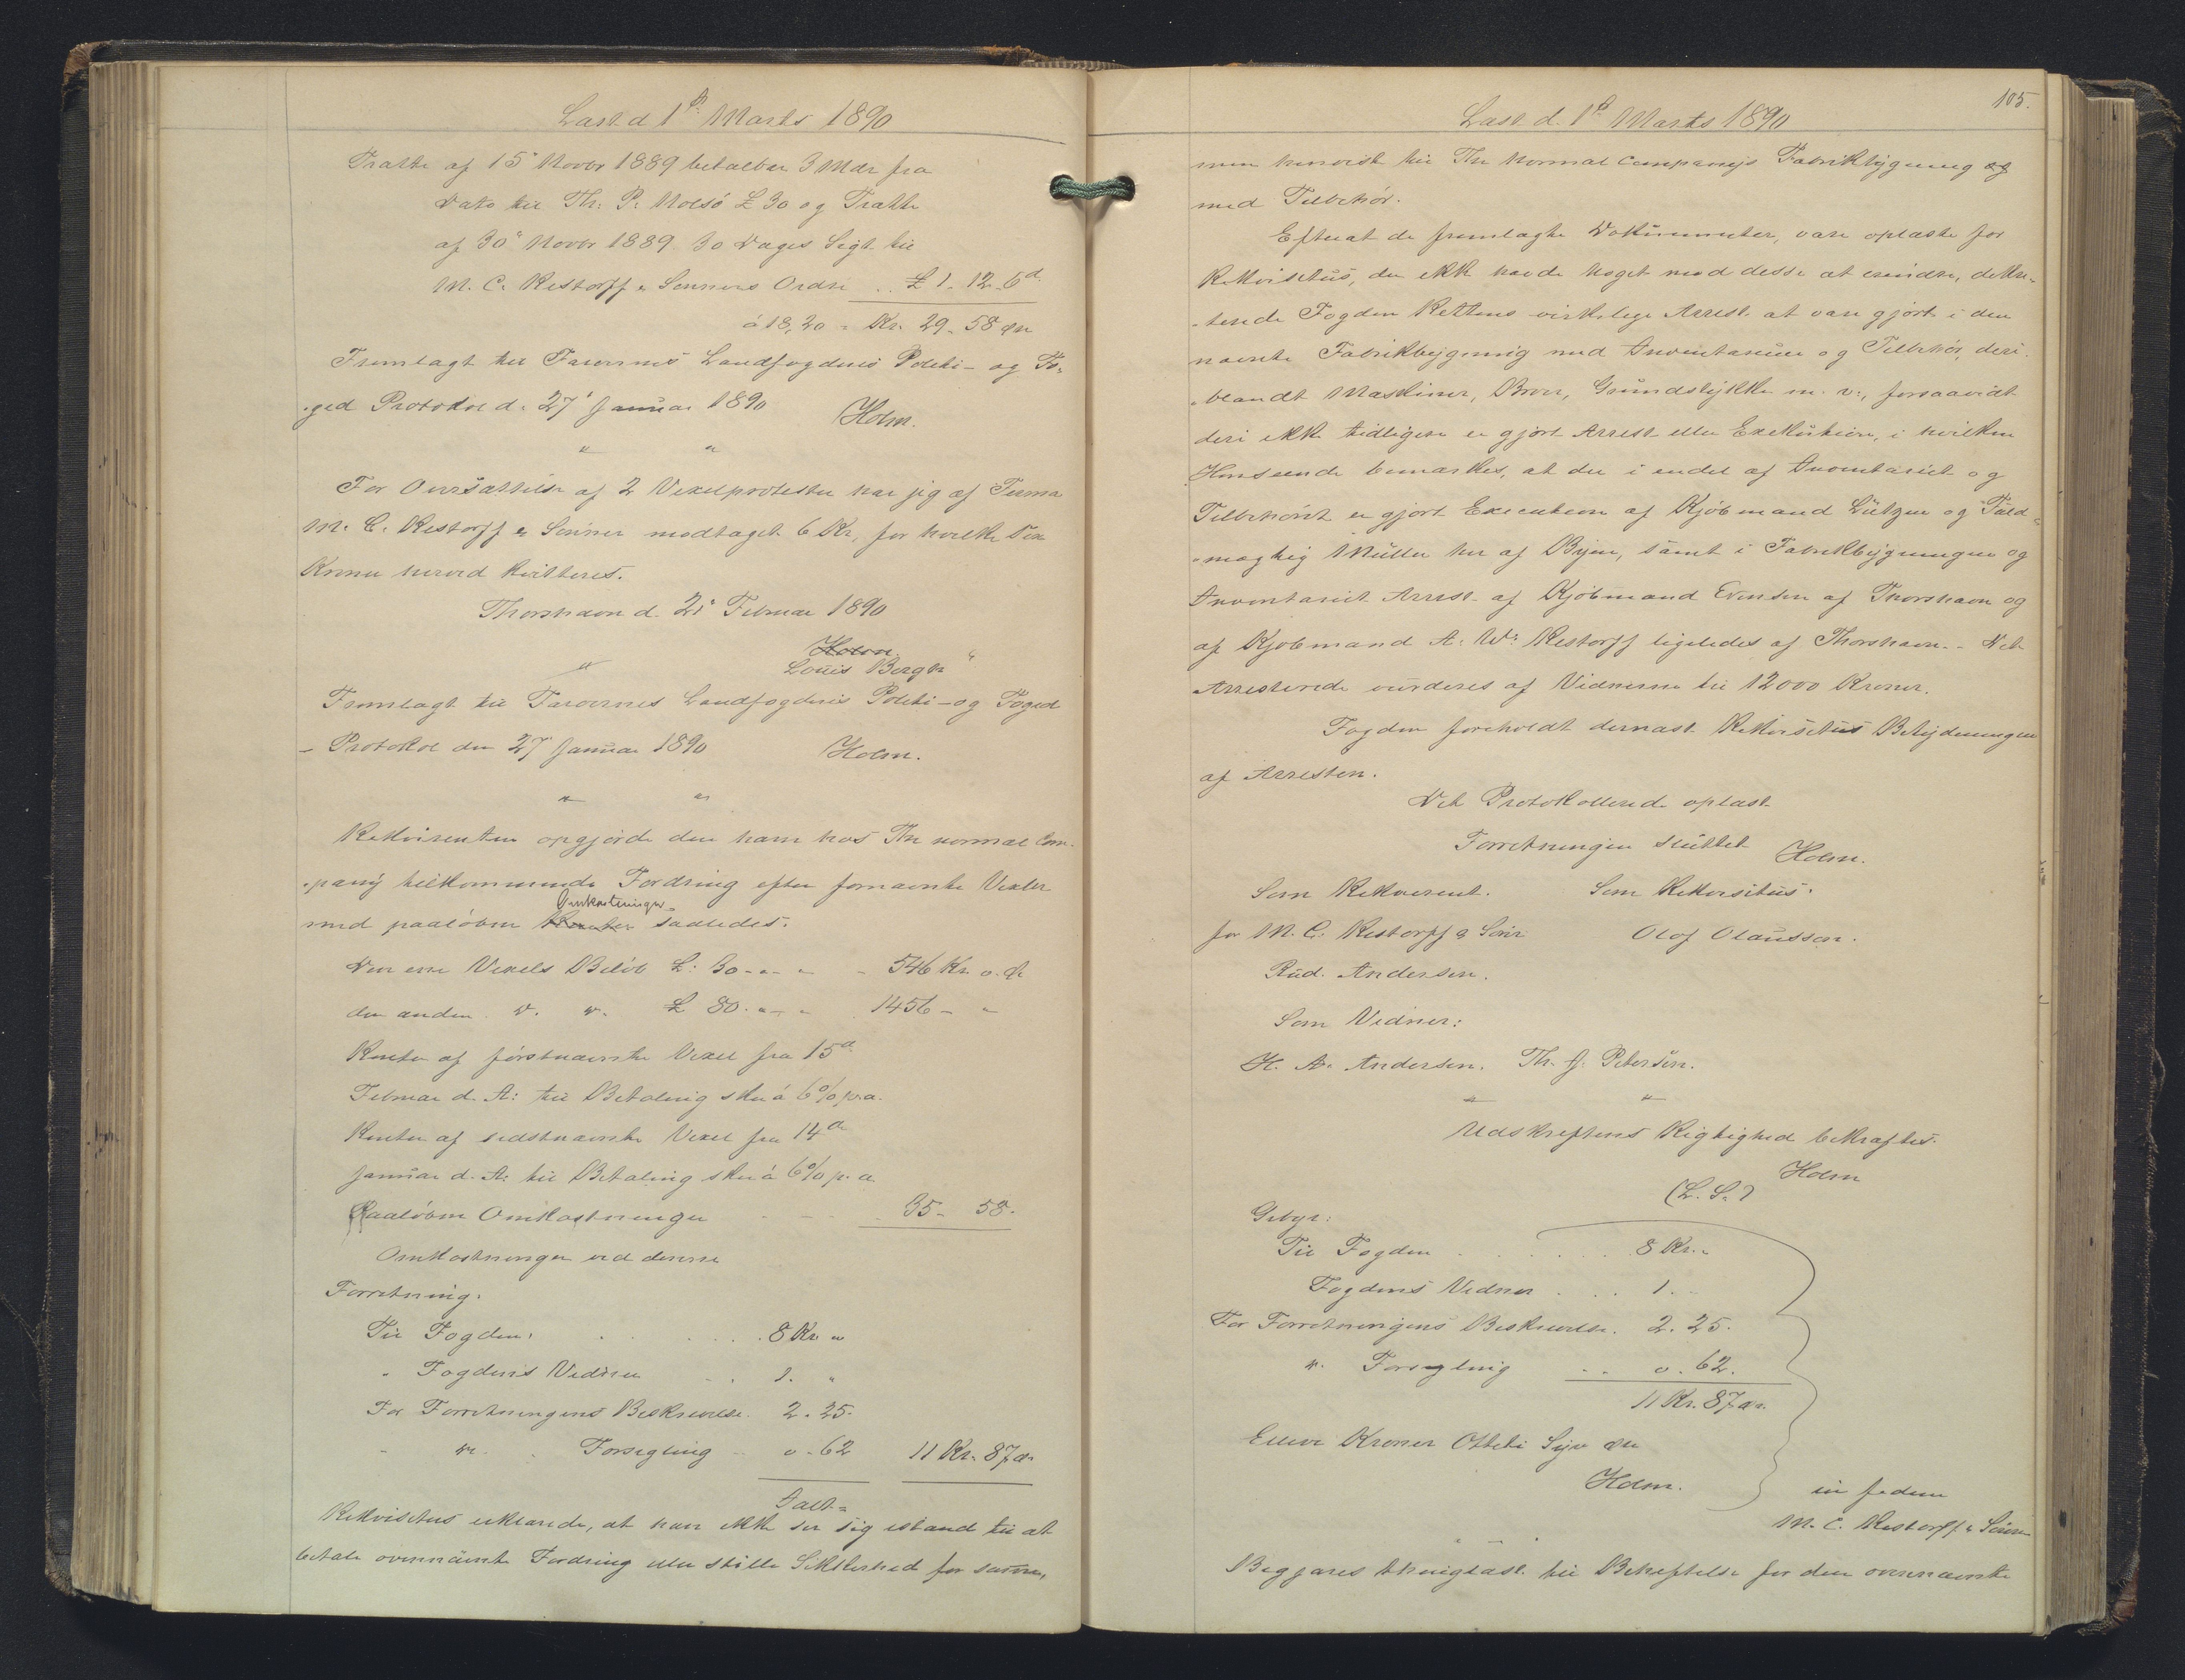 Læst d 1ste Marts 1890
Tratte af 15' Novbr 1889 betalbar 3 Mdr fra
Dato til Th: P. Nolsö £ 30 og Tratte
af 30' Novbr 1889 30 Dages Sigt til
M. C. Restorff & Sönners Ordre .. £ 1-12-6d
à 18,20 = Kr. 29-58 Øre
Fremlagt til Færøernes Landfogderis Politi- og Fo-
-ged Protokol d. 27' Januar 1890 Holm.
" "
For Oversættelse af 2 Vexelprotester har jeg af Firma
M. C. Restorff & Sönner modtaget 6 Kr, for hvilke Sex
Kroner herved kvitteres.
Thorshavn d. 21' Februar 1890
Holm.
" Louis Bergh "
Fremlagt til Færøernes Landfogderis Politi- og Foged
- Protokol den 27' Januar 1890 Holm.
" "
Rekvirenten opgjorde den ham hos The normal Com-
-pany tilkommende Fordring efter fornævnte Vexler
Omkostninger
med paaløbne Renter saaledes.
Den ene Vexels Beløb £: 30-"-" - 546 Kr. o. Ør
den anden D. D. £ 80-"-" 1456- "
Renter af førstnævnte Vexel fra 15de
Februar d. A: til Betaling sker à 6% p.a.
Renter af sidstnævnte Vexel fra 14de
Januar d. A: til Betaling sker à 6% p. a
Paaløbne Omkostninger 35- 58.
Omkostninger ved denne
Forretning:
Til Fogden: 8 Kr "
" Fogdens Vidner 1. "
For Forretningens Beskrivelse. 2.25.
- D. Forsegling o-62 11 Kr. 87 Ør
Ialt =
Rekvisitus erklærede, at han ikke ser sig istand til at
betale ovennævnte Fordring eller stille Sikkerhed for samme,
105.
Læst d. 1ste Marts 1890
men henviste til The Normal Companys Fabrikbygning og
med Tilbehør.
Efterat de fremlagte Dokumenter, vare oplæste for
Rekvisitus, der ikke havde Noget mod disse at erindre, dekre-
-terede Fogden Rettens virkelige Arrest at være gjort i den
nævnte Fabrikbygning med Inventarium og Tilbehør, deri-
-blandt Maskiner, Broer, Grundstykke m. v., forsaavidt
deri ikke tidligere er gjort Arrest eller Exekution, i hvilken
Henseende bemærkes, at der i endel af Inventariet og
Tilbehøret er gjort Execution af Kjøbmand Lützen og Fuld-
-mægtig Müller her af Byen, samt i Fabrikbygningen og
Inventariet Arrest af Kjøbmand Evensen af Thorshavn og
af Kjøbmand A. W. Restorff ligeledes af Thorshavn. - Det
Arresterede vurderes af Vidnerne til 12000 Kroner.
Fogden foreholdt dernæst Rekvisitus Betydningen
af Arresten.
Det Protokollerede oplæst
Forretningen sluttet Holm.
Som Rekvirent. Som Rekvisitus.
for M. C. Restorff & Sönner Olof Olausson.
Rud. Andersen.
Som Vidner:
H. A. Andersen. Th. J. Petersen.
" "
Udskriftens Rigtighed bekræftes.
Holm
(L. S.)
Gebyr:
Til Fogden 8 Kr. "
Fogdens Vidner 1. "
For Forretningens Beskrivelse. 2.25.
D. Forsegling o. 62.
11 Kr. 87 Ør.
Elleve Kroner Otteti Syv Øre
Holm. in fidem
M. C. Restorff & Sönner
" "
Begjæres thinglæst til Behæftelse for den ovennævnte